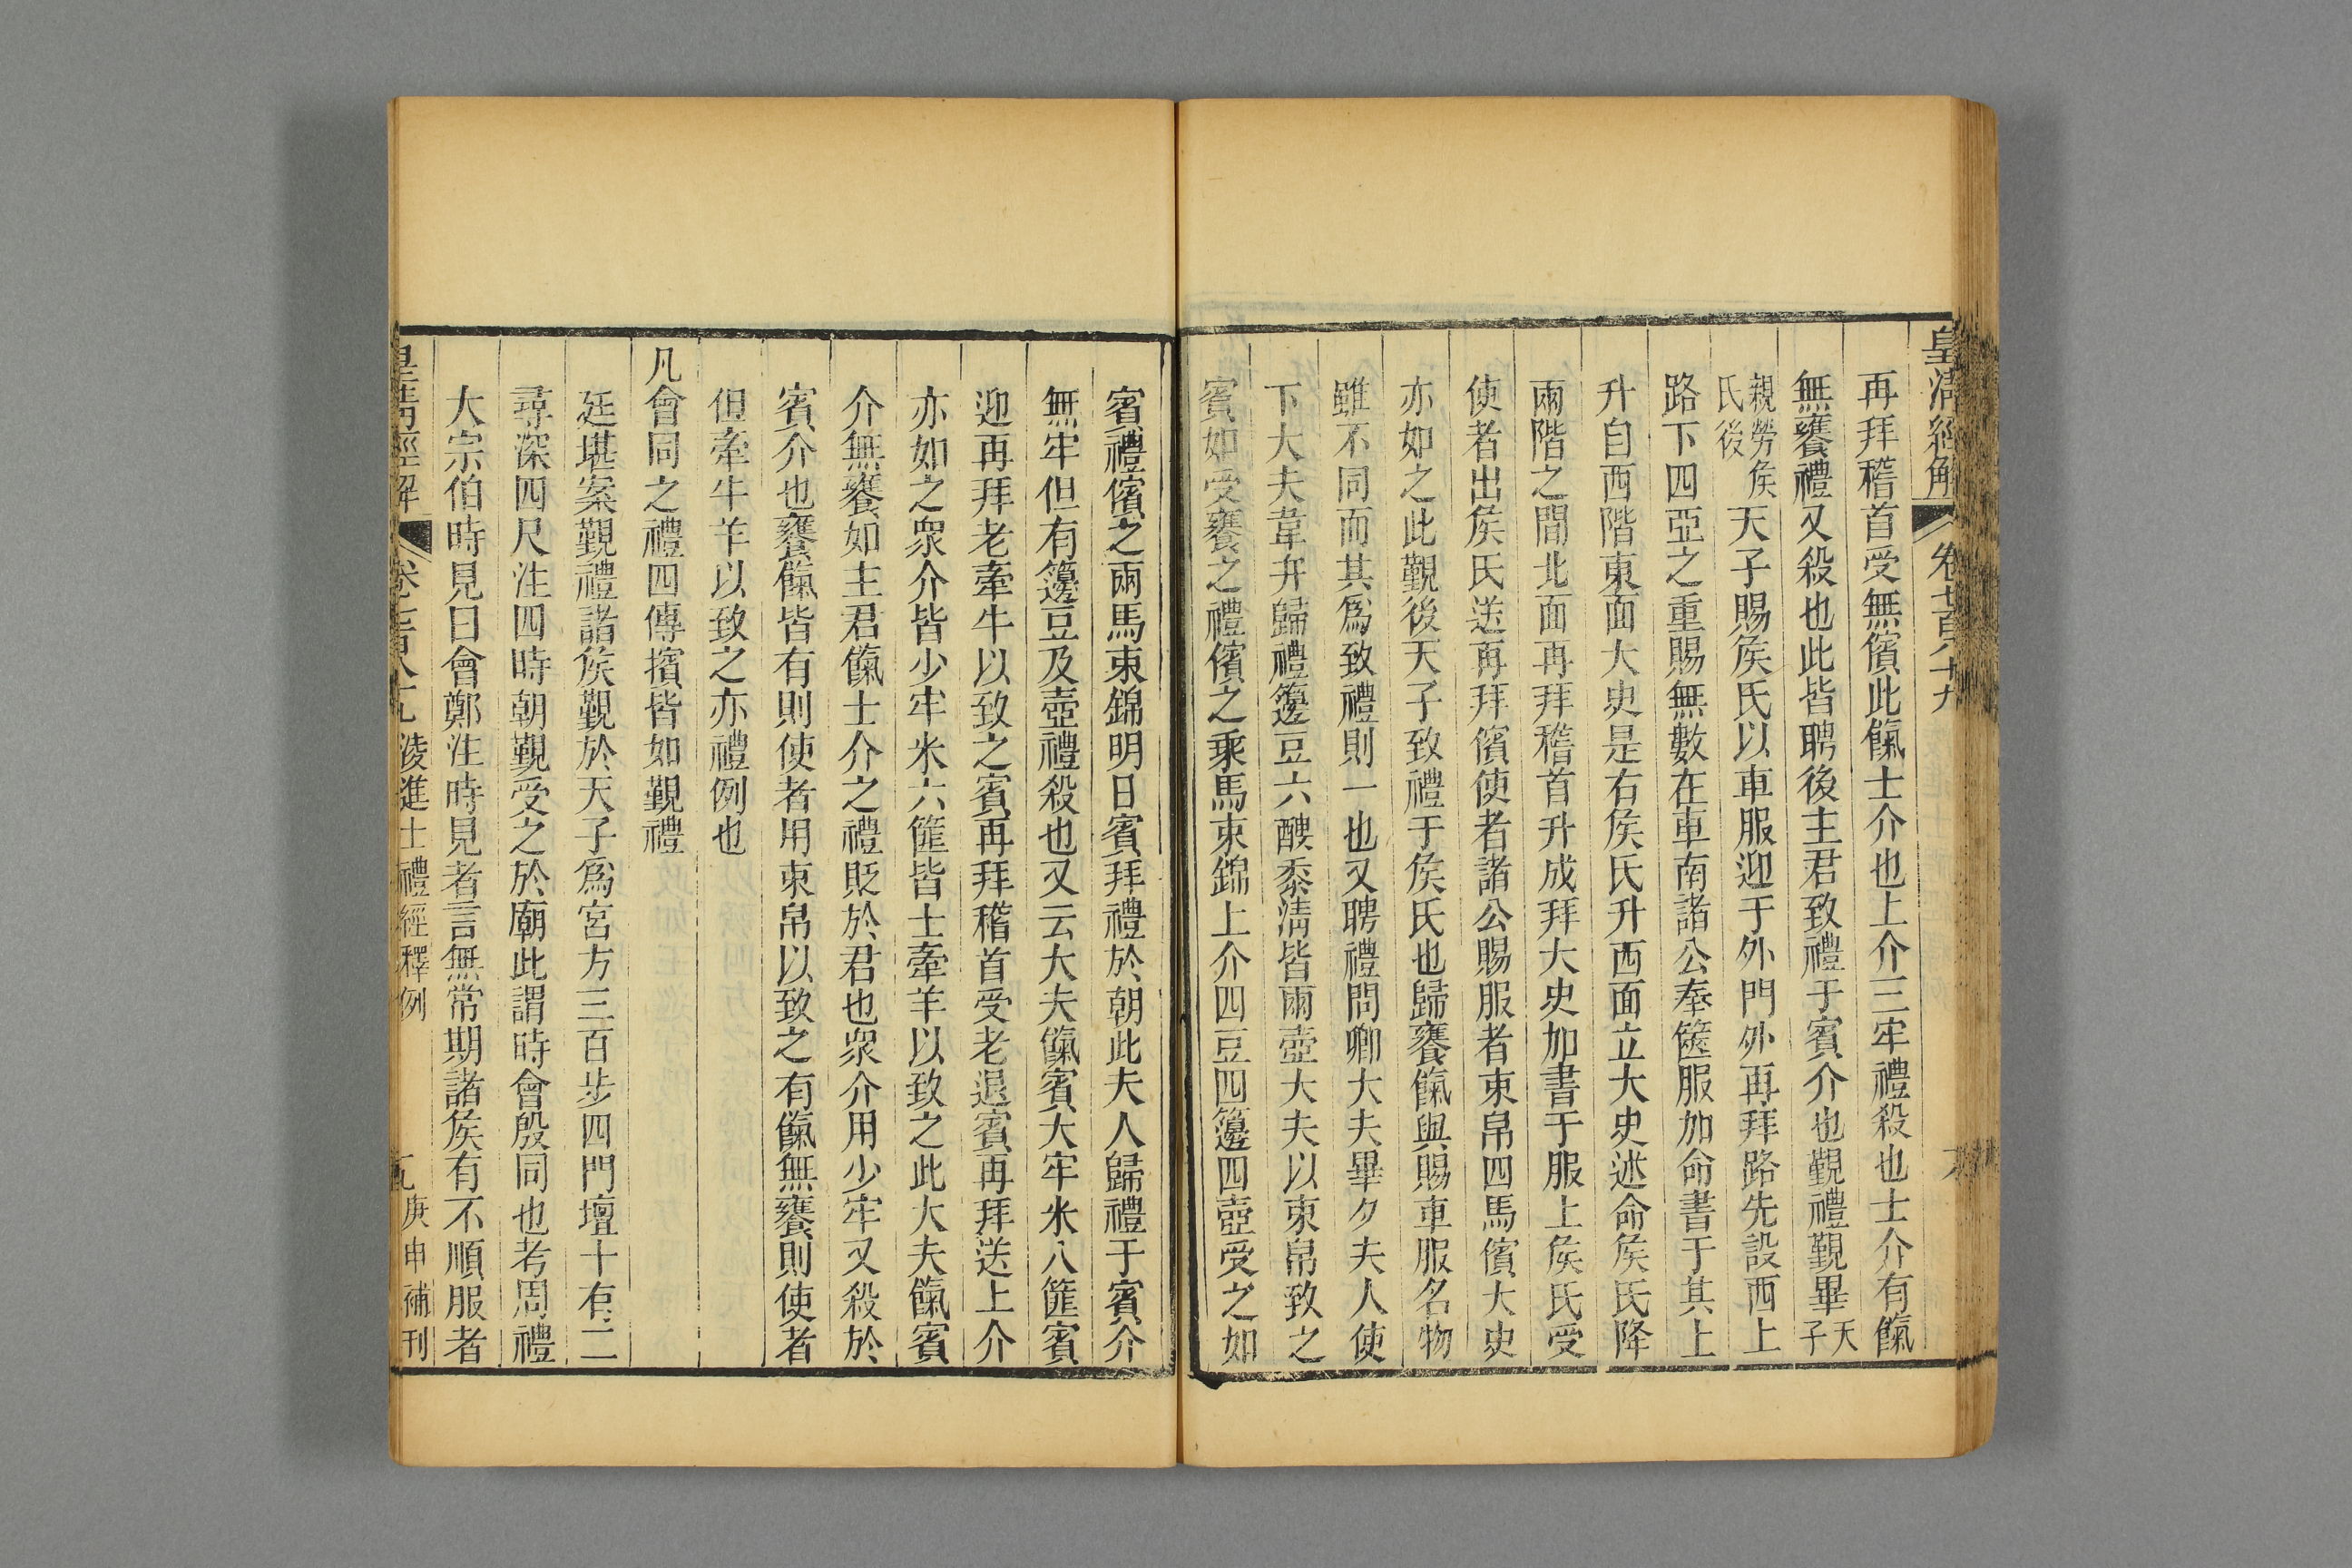 皇清經解 卷七百八十九
再拜稽首受無儐此餼士介也上介三牢禮殺也士介有餼
無饔禮又殺也此皆聘後主君致禮于賓介也覲禮覲畢天子
親勞矦氏後天子賜矦氏以車服迎于外門外再拜路先設西上
路下四亞之重賜無數在車南諸公奉篋服加命書于其上
升自西階東面大史是右矦氏升西面立大史述命矦氏降
兩階之間北面再拜稽首升成拜大史加書于服上矦氏受
使者出矦氏送再拜儐使者諸公賜服者束帛四馬儐大史
亦如之此覲後天子致禮于矦氏也歸饔餼與賜車服名物
雖不同而其爲致禮則一也又聘禮問卿大夫畢夕夫人使
下大夫韋弁歸禮籩豆六醙黍清皆兩壺大夫以束帛致之
賓如受饔之禮儐之乘馬束錦上介四豆四籩四壺受之如
賓禮儐之兩馬束錦明日賓拜禮於朝此夫人歸禮于賓介
無牢但有籩豆及壺禮殺也又云大夫餼賓大牢米八筐賓
迎再拜老牽牛以致之賓再拜稽首受老退賓再拜送上介
亦如之衆介皆少牢米六筐皆士牽羊以致之此大夫餼賓
介無饔如主君餼士介之禮貶於君也衆介用少牢又殺於
賓介也饔餼皆有則使者用束帛以致之有餼無饔則使者
但牽牛羊以致之亦禮例也
凡會同之禮四傳擯皆如覲禮
廷堪案覲禮諸矦覲於天子爲宮方三百步四門壇十有二
尋深四尺注四時朝覲受之於廟此謂時會殷同也考周禮
大宗伯時見曰會鄭注時見者言無常期諸矦有不順服者
皇清經解 卷七百八十九 淩進士禮經釋例 庚申補刊